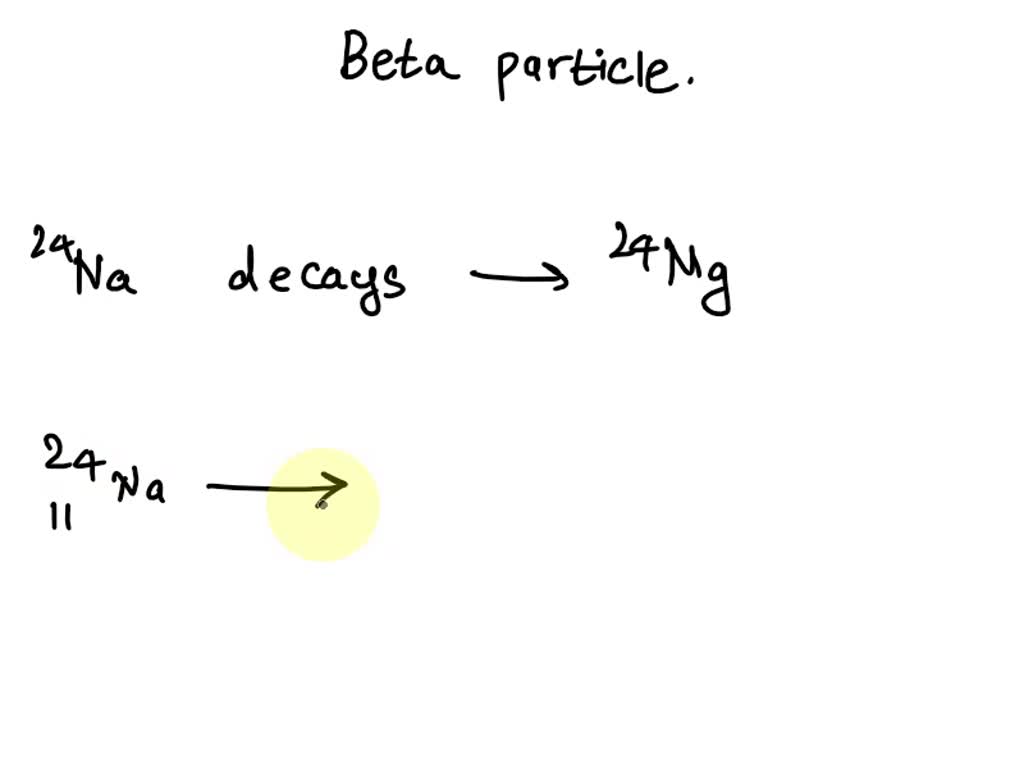 Beta particle.
²⁴Na decays → ²⁴Mg
²⁴₁₁Na →